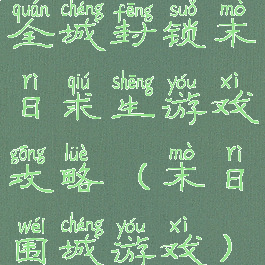 quán chéng fēng suǒ mò
全城封锁末
rì qiú shēng yóu xì
日求生游戏
gōng lüè mò rì
攻略(末日
wéi chéng yóu xì
围城游戏)